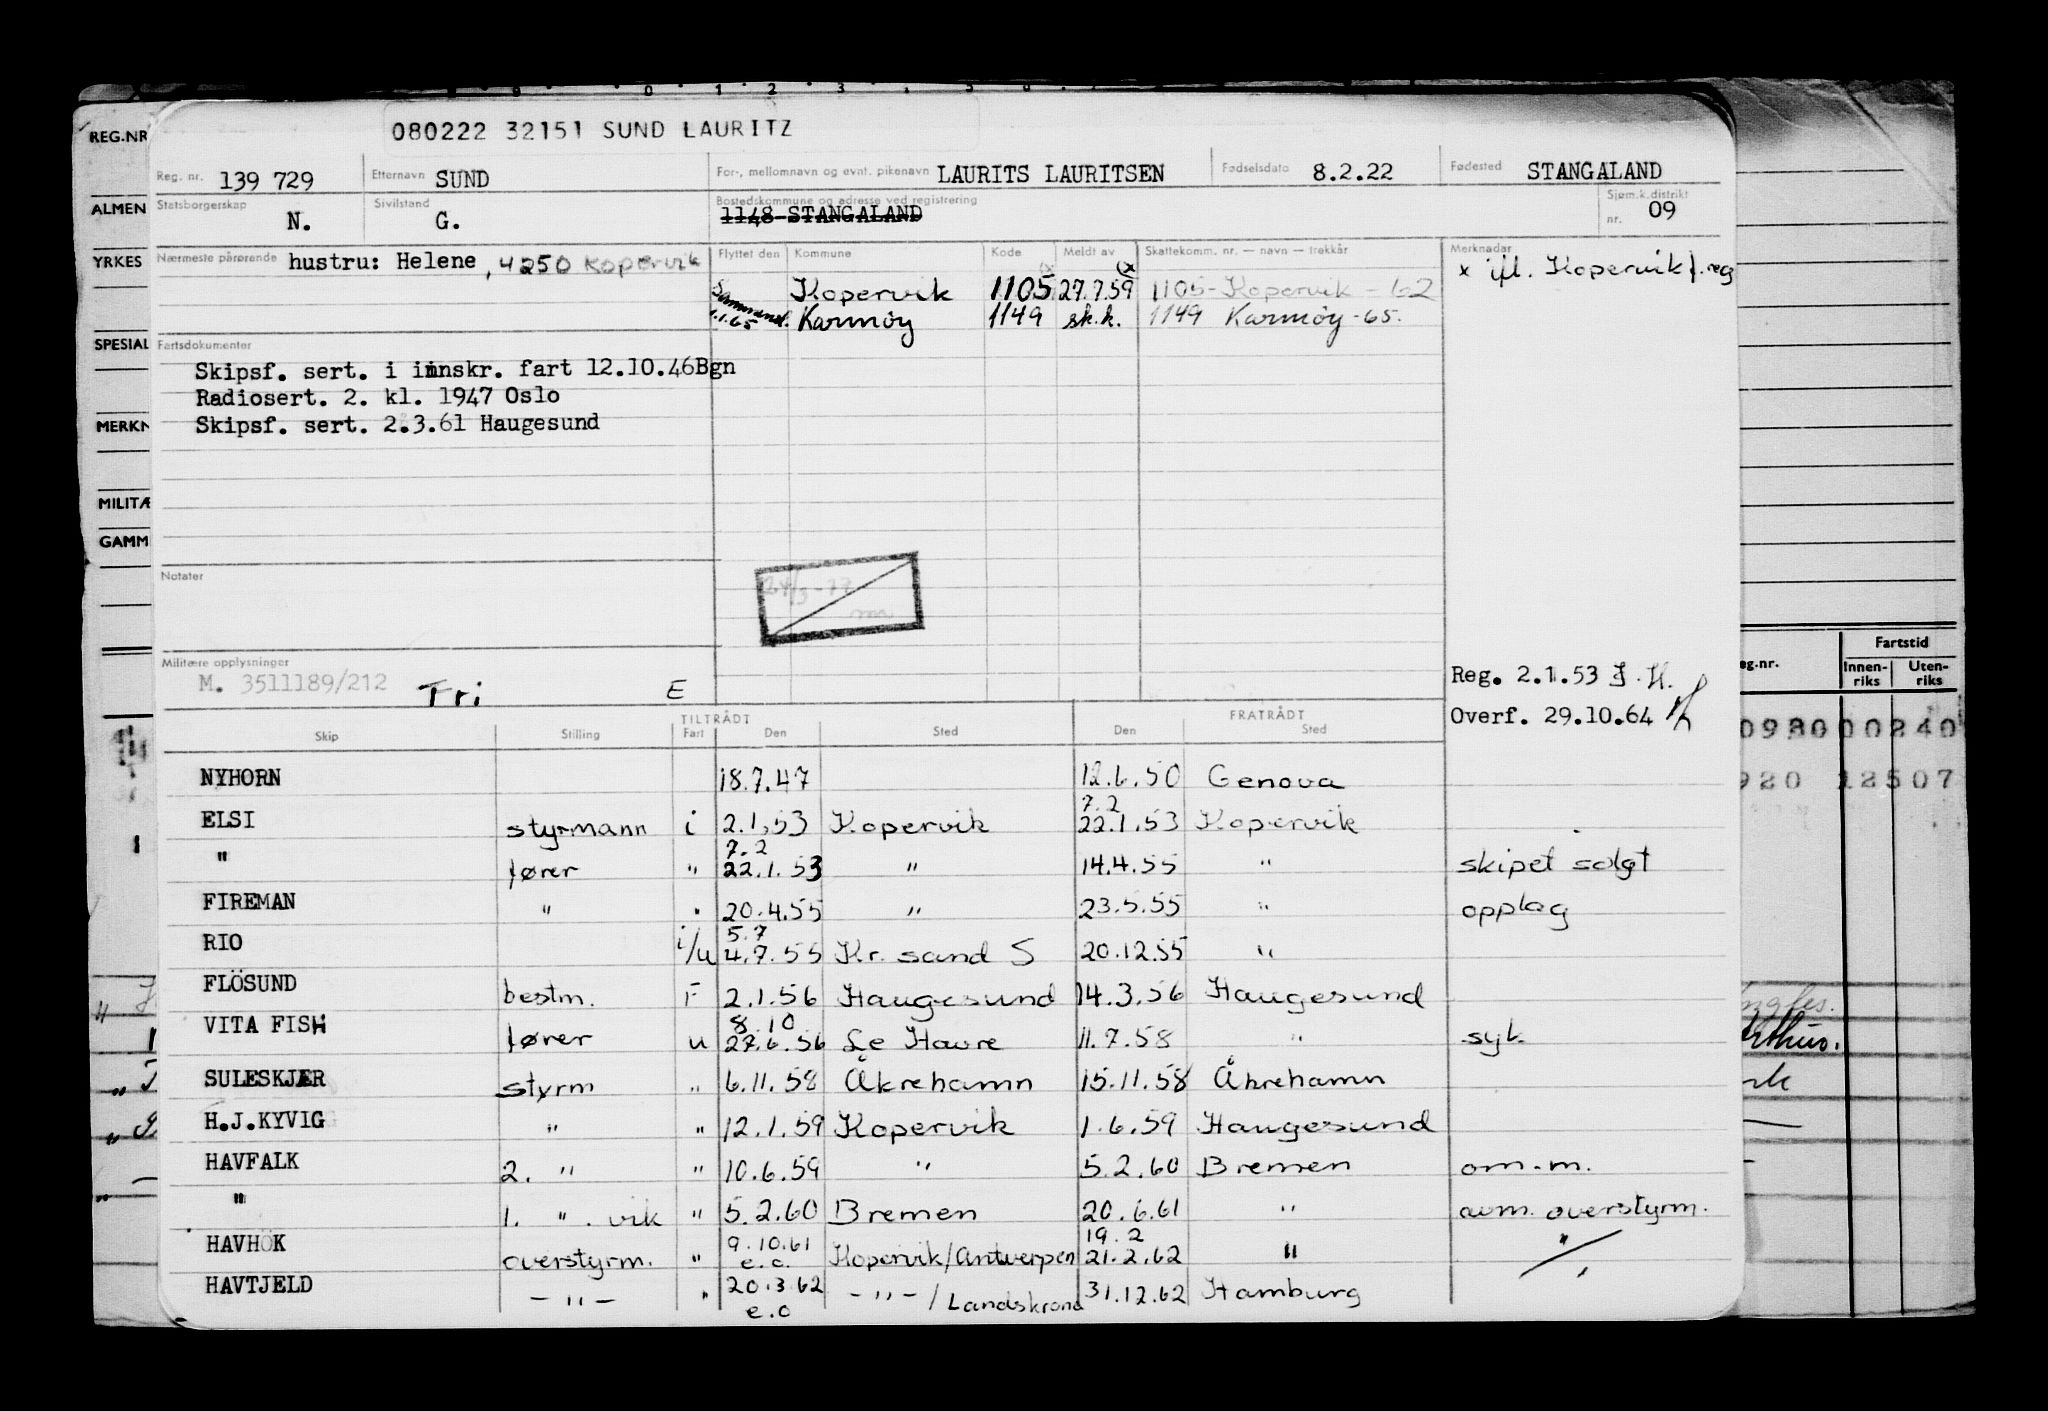 080222 32151 SUND LAURITZ
REG.NR
Reg. nr. 139 729 Etternavn SUND For-, mellomnavn og evnt. pikenavn LAURITS LAURITSEN Fødselsdato 8.2.22 Fødested STANGALAND
ALMEN
Statsborgerskap N. Sivilstand G. Bostedskommune og adresse ved registrering 1148-STANGALAND Sjøm.k.distrikt nr. 09
YRKES
Nærmeste pårørende hustru: Helene, 4250 Kopervik Flyttet den Kommune Kode Meldt av Skattekomm. nr. — navn — trekkår Merknader
(x x ifl. Kopervik f.reg
Kopervik 1105 27.7.59 1105-Kopervik - 62
1.1.65 Karmøy 1149 sk.k. 1149 Karmøy-65.
SPESIAL
Fartsdokumenter
Skipsf. sert. i innskr. fart 12.10.46Bgn
Radiosert. 2. kl. 1947 Oslo
MERKN
Skipsf. sert. 2.3.61 Haugesund
MILITÆ
GAMM
Notater
24/3-77
Militære opplysninger
M. 3511189/212 Fri E
Reg. 2.1.53
Overf. 29.10.64
eg.nr. Fartstid
Innen-riks Uten-riks
TILTRÅDT FRATRÅDT
Skip Stilling Fart Den Sted Den Sted
NYHORN 18.7.47 12.6.50 Genova
7.2
ELSI styrmann i 2.1.53 Kopervik 22.1.53 Kopervik
7.2
" fører " 22.1.53 " 14.4.55 " skipet solgt
FIREMAN " " 20.4.55 " 23.5.55 " opplag
5.7
RIO i/u 4.7.55 Kr. sand S 20.12.55 "
FLÖSUND bestm. F 2.1.56 Haugesund 14.3.56 Haugesund
8.10
VITA FISH fører u 27.6.56 Le Havre 11.7.58 " syk.
SULESKJÆR styrm " 6.11.58 Åkrehamn 15.11.58 Åkrehamn
H.J.KYVIG " " 12.1.59 Kopervik 1.6.59 Haugesund
HAVFALK 2. " " 10.6.59 " 5.2.60 Bremen om.m.
" 1. ". vik " 5.2.60 Bremen 20.6.61 " avm. overstyrm.
19.2
HAVHÖK overstyrm. " 9.10.61 e.o. Kopervik/Antwerpen 21.2.62 " "
HAVTJELD - " - " 20.3.62 e.o - " - / Landskrona 31.12.62 Hamburg